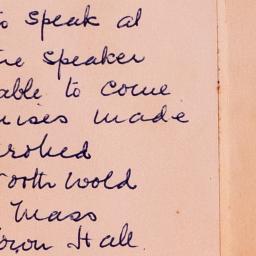 to speak at
the speaker
able to come
uises made
roked
North Wold
Mass
Town Hall.